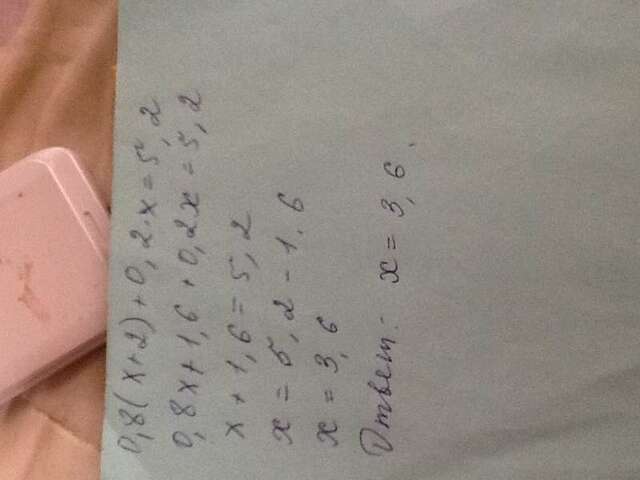 0,8(x+2)+0,2·x=5,2
0,8x+1,6+0,2x=5,2
x+1,6=5,2
x=5,2-1.6
x=3,6
Ответ: x=3,6.